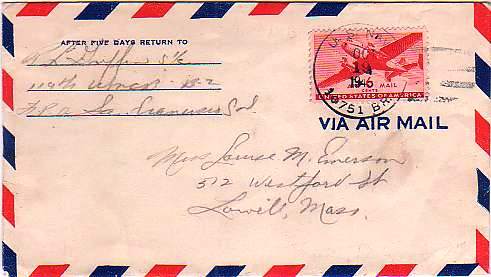 AFTER FIVE DAYS RETURN TO
119th
San Francisco
U.S. N
19
1946
16751 BR.
AIR MAIL
CENTS
UNITED STATES OF AMERICA
VIA AIR MAIL
Miss Louise M. Emerson
512 Westford St
Lowell, Mass.